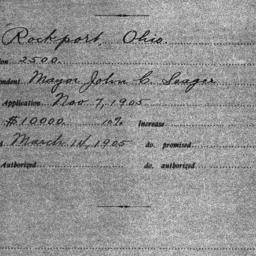 Rockport, Ohio.
ion 2500.
ndent Mayor John C. Seager
Application Nov. 7, 1905
$10000 10% Increase
March 14, 1905 do. promised
Authorized do. authorized